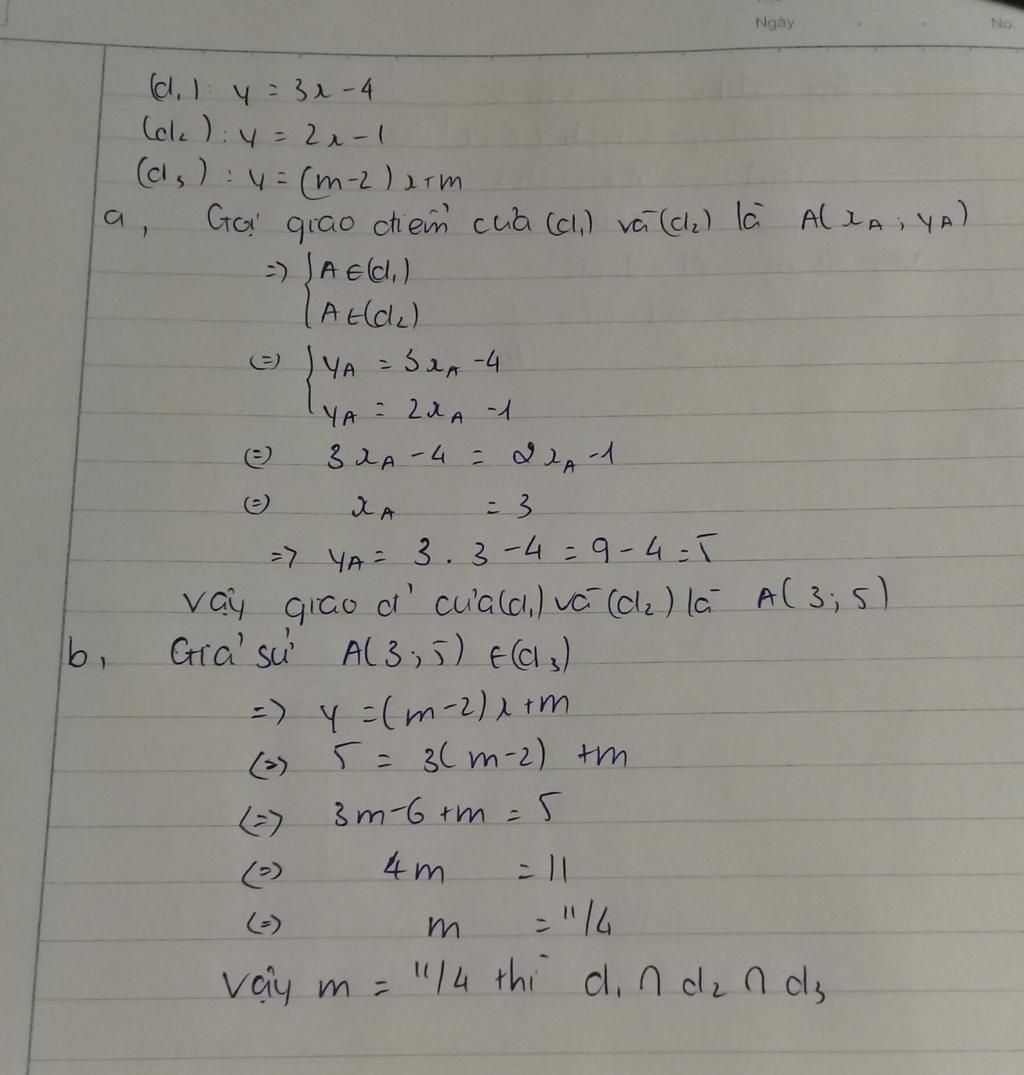 Ngày No
(d₁): y = 3x - 4
(d₂): y = 2x - 1
(d₃): y = (m-2)x+m
a, Gọi giao điểm của (d₁) và (d₂) là A(x_A; y_A)
=> { A ∈ (d₁)
A ∈ (d₂)
(=) { y_A = 3x_A - 4
y_A = 2x_A - 1
(=) 3x_A - 4 = 2x_A - 1
(=) x_A = 3
=> y_A = 3 . 3 - 4 = 9 - 4 = 5
Vậy giao đ' của (d₁) và (d₂) là A(3; 5)
b, Giả sử A(3; 5) ∈ (d₃)
=> y = (m-2)x+m
(=> 5 = 3(m-2) + m
(=> 3m - 6 + m = 5
(=> 4m = 11
(=> m = 11/4
Vậy m = 11/4 thì d₁ ∩ d₂ ∩ d₃